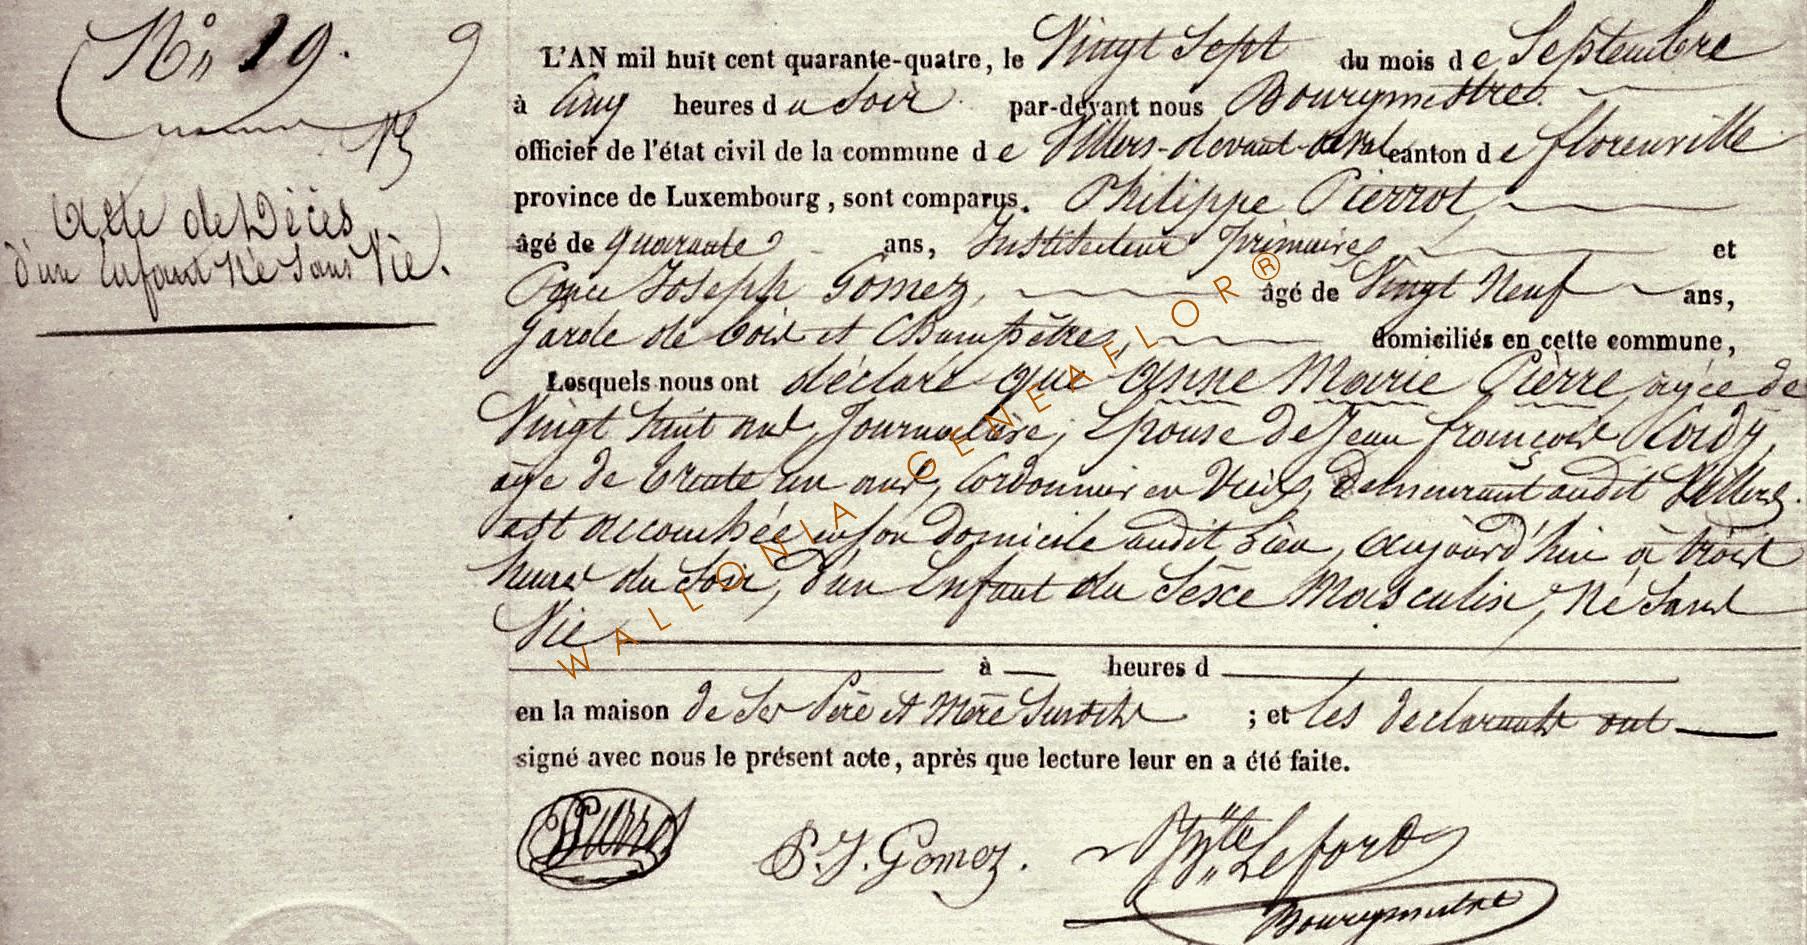 N° 19.
Acte de Décès
d'un Enfant Né Sans Vie.
L'AN mil huit cent quarante-quatre, le Vingt Sept du mois de Septembre
à Cinq heures du Soir par-devant nous Bourgmestre
officier de l'état civil de la commune de Villers-devant-orval canton de florenville
province de Luxembourg, sont comparus. Philippe Pierrot,
âgé de quarante ans, Instituteur primaire, et
Joseph Gomez, âgé de Vingt Neuf ans,
garde de bois et Champêtre, domiciliés en cette commune,
Lesquels nous ont déclaré que anne Marie Pierre, agée de
Vingt huit ans, Journalière, Epouse de Jean françois Cordy,
age de trente un ans, Cordonnier en Vieux, Demeurant audit Villers.
est accouchée en son domicile audit Lieu, aujourd'hui à trois
heures du Soir, d'un Enfant du Séxe Masculin, Né Sans
Vie
à heures d
en la maison de Ses Père et Mère Susdits ; et les declarants ont
signé avec nous le présent acte, après que lecture leur en a été faite.
Pierrot
P. J. Gomez.
Hyte Lefort
Bourgmestre
WALLONIA GENEAFLOR®